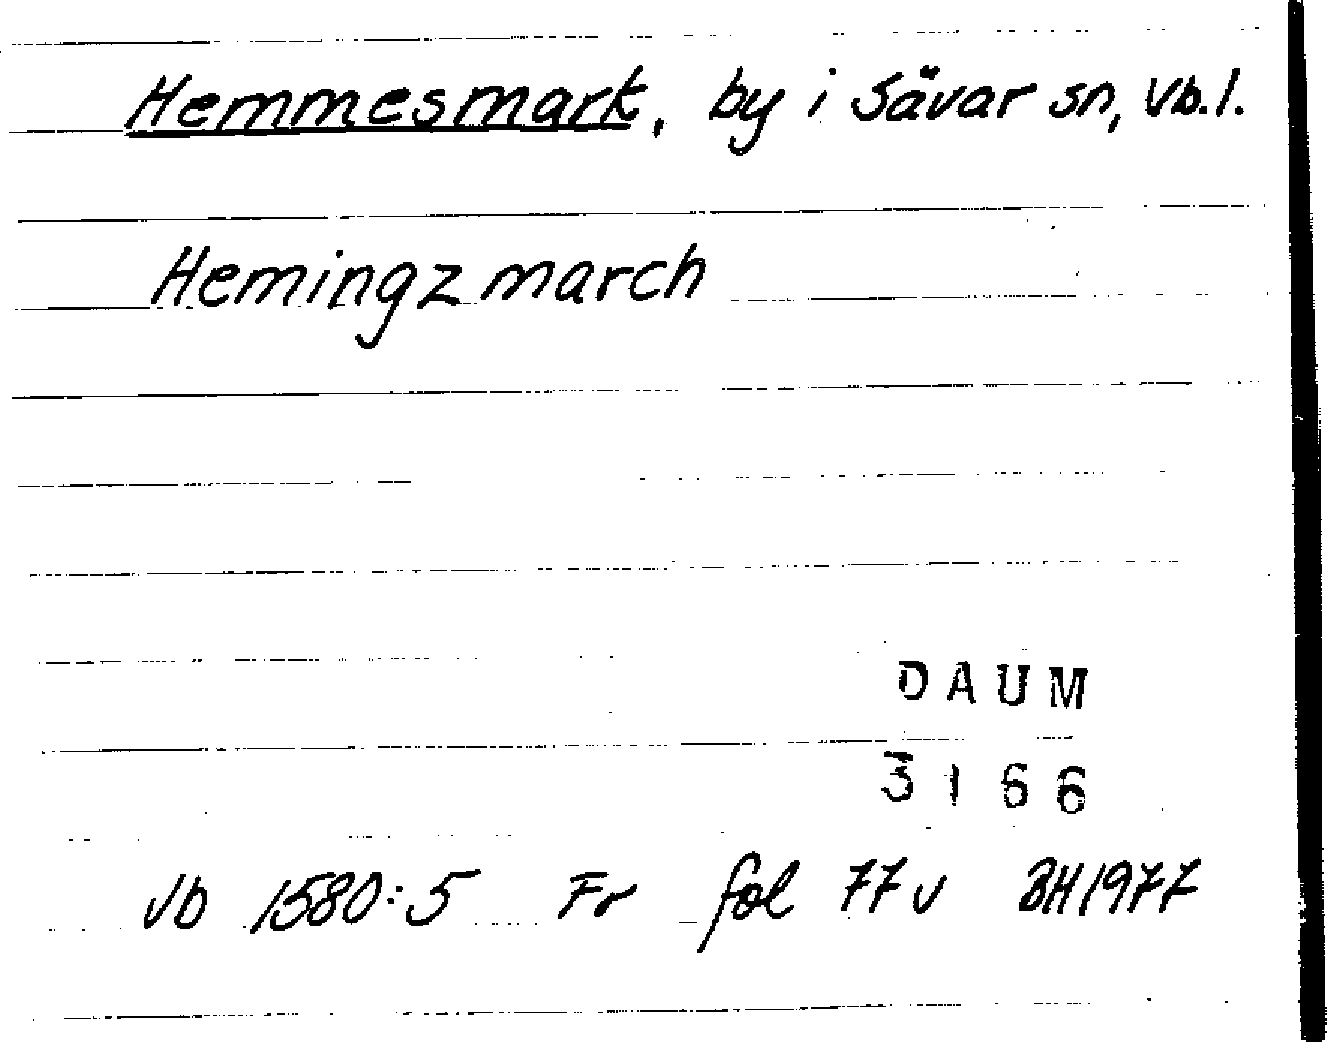 Hemmesmark, by i Sävar sn, Vb.l.
Hemingzmarch
DAUM
3166
Vb 1580:5 Fr fol 77v BH1977